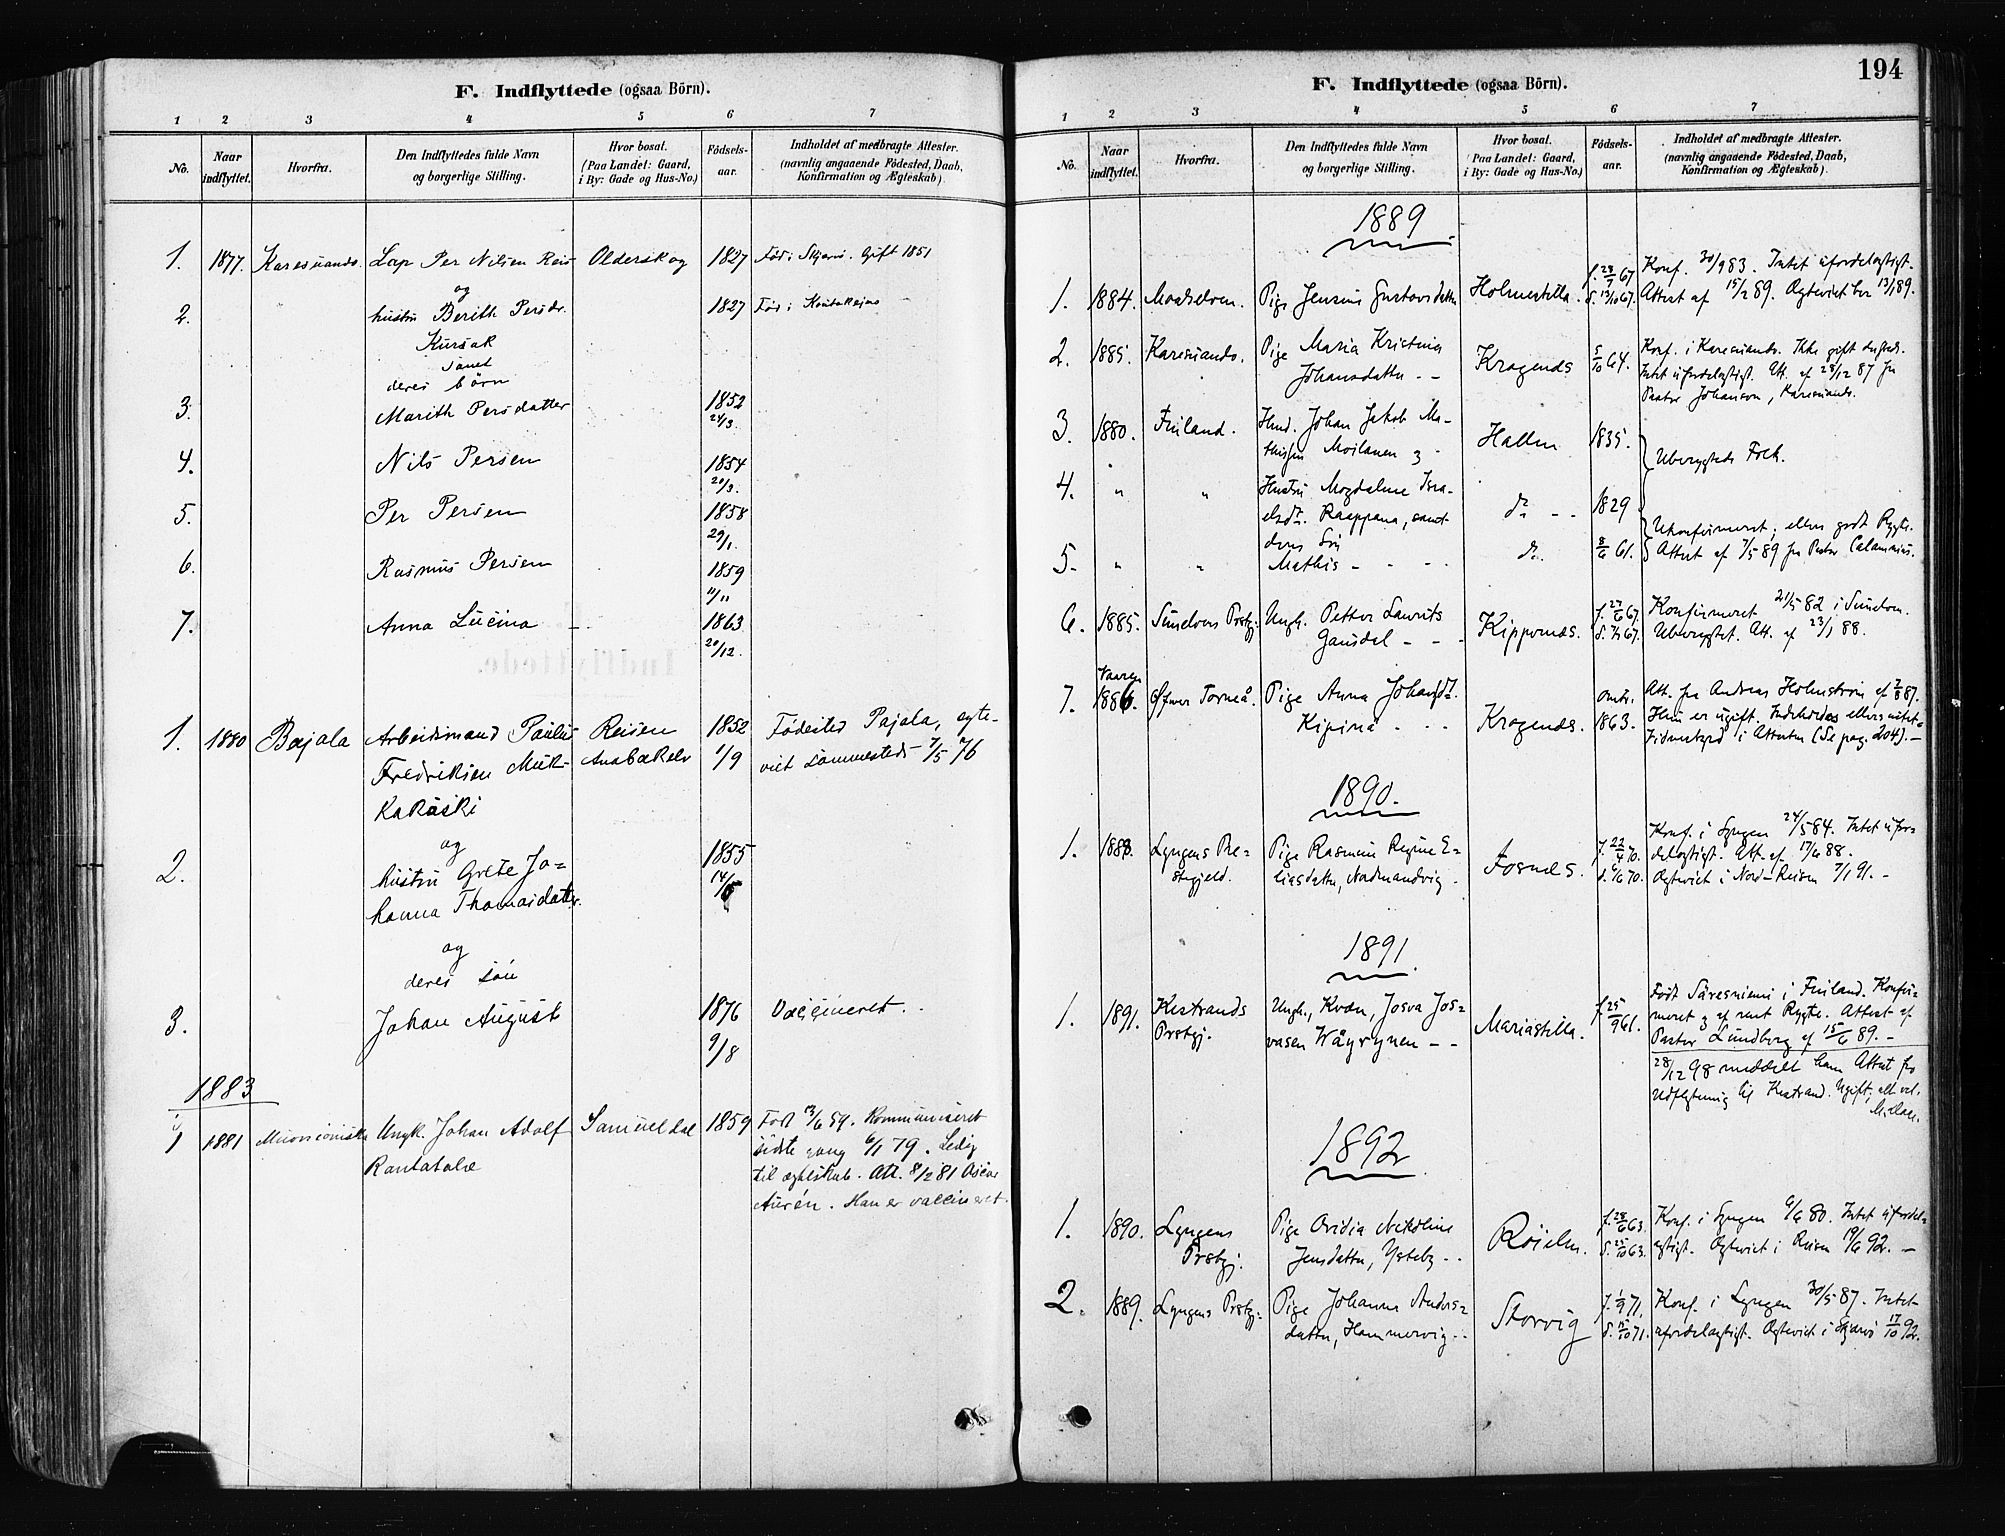 F. Indflyttede (ogsaa Börn).
1 2 3 4 5 6 7
No. Naar indflyttet. Hvorfra. Den Indflyttedes fulde Navn og borgerlige Stilling. Hvor bosat. (Paa Landet: Gaard, i By: Gade og Hus-No.) Födsels-aar. Indholdet af medbragte Attester. (navnlig angaaende Födested, Daab, Konfirmation og Ægteskab).
1. 1877. Karesuando. Lap Per Nilsen Olderskog 1827 Fød i Skjervö. Gift 1851
og
2. hustru Berith Persdr. 1827 Fød i Koutokeino
Kursak
samt
deres börn
3. Marith Persdatter 1852
24/3.
4. Nils Persen 1854
20/3.
5. Per Persen 1858
29/1.
6. Rasmus Persen 1859
11/11
7. Anna Lucina 1863
20/12.
1. 1880 Bajala Arbeidsmand Paulus Reisen 1852 Födested Pajala, egte-
Fredriksen Muk- 1/9 viet sammesteds 7/5 76
Kakoski
og
2. hustru Grete Jo- 1855
hanna Thomasdatter. 14/5
og
deres sön
3. Johan August 1876 Vaccineret.
9/8
1883
1 1881 Ungk. Johan Adolf Samueldal 1859 Født 13/6 59. Kommuniceret
Rantatalo sidste gang 6/1 79. Ledig
til egteskab. Att. 8/2 81
Aurén. Han er vaccineret.
194
F. Indflyttede (ogsaa Börn).
1 2 3 4 5 6 7
No. Naar indflyttet. Hvorfra. Den Indflyttedes fulde Navn og borgerlige Stilling. Hvor bosat. (Paa Landet: Gaard, i By: Gade og Hus-No.) Födsels-aar. Indholdet af medbragte Attester. (navnlig angaaende Födested, Daab, Konfirmation og Ægteskab).
1889
1. 1884. Maalselven. Pige Jensine Gustavsdatter Holmestilla. f. 28/7 67 Konf. 30/9 83. Intet ufordelagtigt.
d. 13/10 67. Attest af 15/2 89. Ogteviet her 13/1 89.
2. 1885. Karesuando. Pige Maria Kristina Kragenes 5/10 64. Konf. i Karesuando. Ikke gift dersteds.
Johansdatter Intet ufordelagtigt. Att. af 28/12 87 fra
Pastor Johanson, Karesuando.
3. 1880. Finland. Husm. Johan Jakob Ma- Hallen 1835. Uberygtede Folk.
thisen Moilanen
4. " " Hustru Magdalene Isra- do 1829
elsdr. Raappana, samt
deres Sön Ukonfirmeret; ellers godt Rygte.
5. " " Mathis do. 8/6 61. Attest af 7/5 89 fra Pastor Calamnius.
6. 1885. Senelvens Prstgj. Ungk. Petter Lavrits Kippernes. f. 27/6 67. Konfirmeret 21/5 82
Gausdal Uberygtet. Att. af 23/1 88.
7. 1886. Öfver Torneå. Pige Anna Johansdr. Kragenes. omtr. 1863. Att. fra Andreas Holmström af 7/8 87.
Kipinä Hun er ugift. Indeholdes ellers intet
i Attesten (Se pag. 204).
1890.
1. 1888. Lyngens Præ- Pige Rasmine Regine E- Fosnes. f. 22/4 70. Konf. i Lyngen 24/5 84. Intet ufor-
stegjeld. liasdatter, Nordmandvig. d. 6/6 70. delagtigt. Att. af 17/6 88.
Ogteviet i Nord-Reisen 7/1 91.
1891.
1. 1891. Kistrands Ungk., Kvæn, Josva Jos- Mariastilla. f. 25/9 61. Født Säresniemi i Finland. Konfir-
Prstgj. vasen Wäyrynen meret og af rent Rygte. Attest af
Pastor Lundberg af 15/6 89.
28/12 98 meddelt ham Attest for
Udflytning til Kistrand. Ugift, alt vel.
1892
1. 1890. Lyngens Pige Ovidia Nikoline Röielen. f. 28/6 63. Konf. i Lyngen 6/6 80. Intet ufordel-
Prstgj. Jensdatter, Ysteby d. 25/10 63. agtigt. Ogteviet i Reisen 19/6 92.
2. 1889. Lyngens Prstgj. Pige Johanne Anders- Storvig f. 1/9 71. Konf. i Lyngen 30/5 87. Intet
datter, Hammervig d. 15/10 71. ufordelagtigt. Ogteviet i Skjervö 17/10 92.